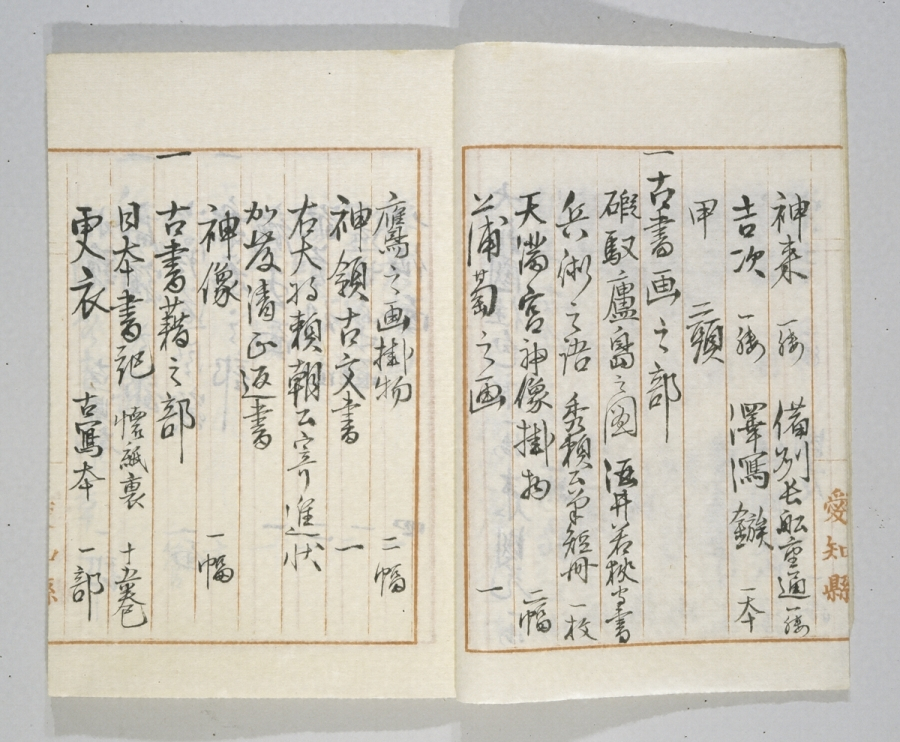 神来　一腰　備州長船重通一腰
吉次　一腰　澤瀉鏃　一本
甲　二頭
一古書画之部
磤馭廬島之図　酒井若狭守書
兵術之語　秀頼公筆短冊　一枚
天満宮神像掛物　二幅
蒲萄之画　一
愛知縣
鷹之画掛物　二幅
神領古文書　一
右大将頼朝公寄進状
加茂清正返書
神像　一幅
一古書藉之部
日本書記　懐紙裏　十五巻
更衣　古寫本　一部